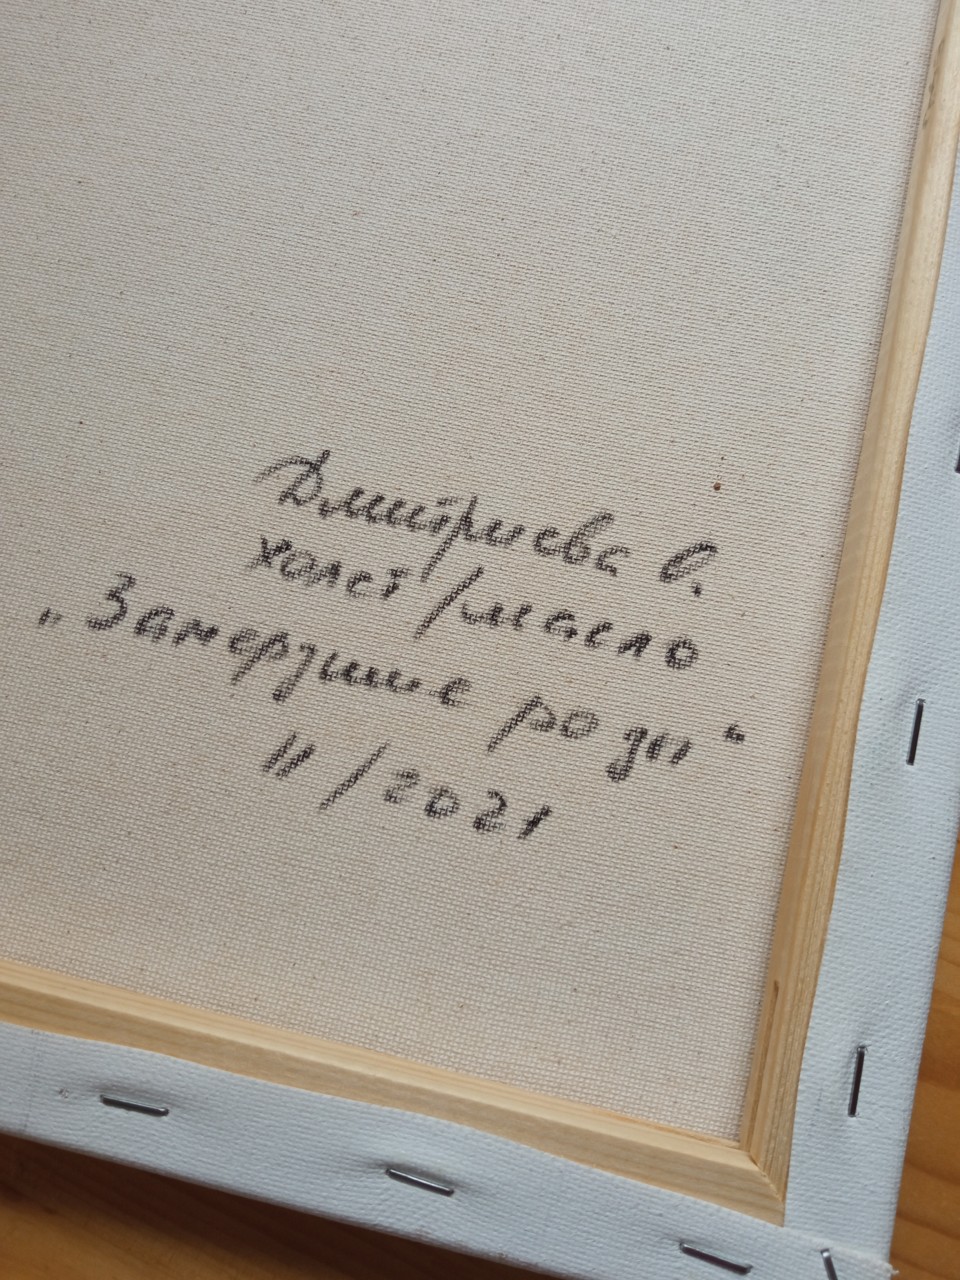 Дмитриева О.
холст/масло
„Замерзшие розы“
11/2021